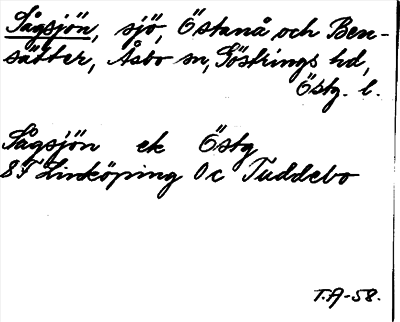 Sågsjön, sjö, Östanå och Ben-
sätter, Åsbo sn, Göstrings hd,
Östg. l.
Sågsjön ek Östg
8F Linköping 0c Tuddebo
T.A-58.